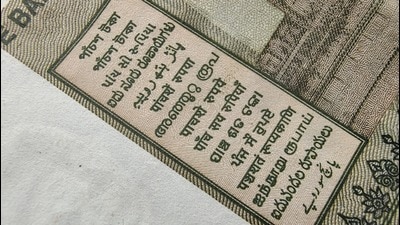 E BAN
পাঁচশ টকা
পাঁচশ টাকা
પાંચ સો રૂપિયા
ಐದು ನೂರು ರೂಪಾಯಿಗಳು
पांचशें रुपया
അഞ്ഞൂറു രൂപ
पाचशे रुपये
पाँच सय रुपियाँ
ପାଞ୍ଚ ଶତ ଟଙ୍କା
ਪੰਜ ਸੌ ਰੁਪਏ
पञ्चशतं रूप्यकाणि
ஐந்நூறு ரூபாய்
ఐదువందల రూపాయలు
پانچ سو روپیے